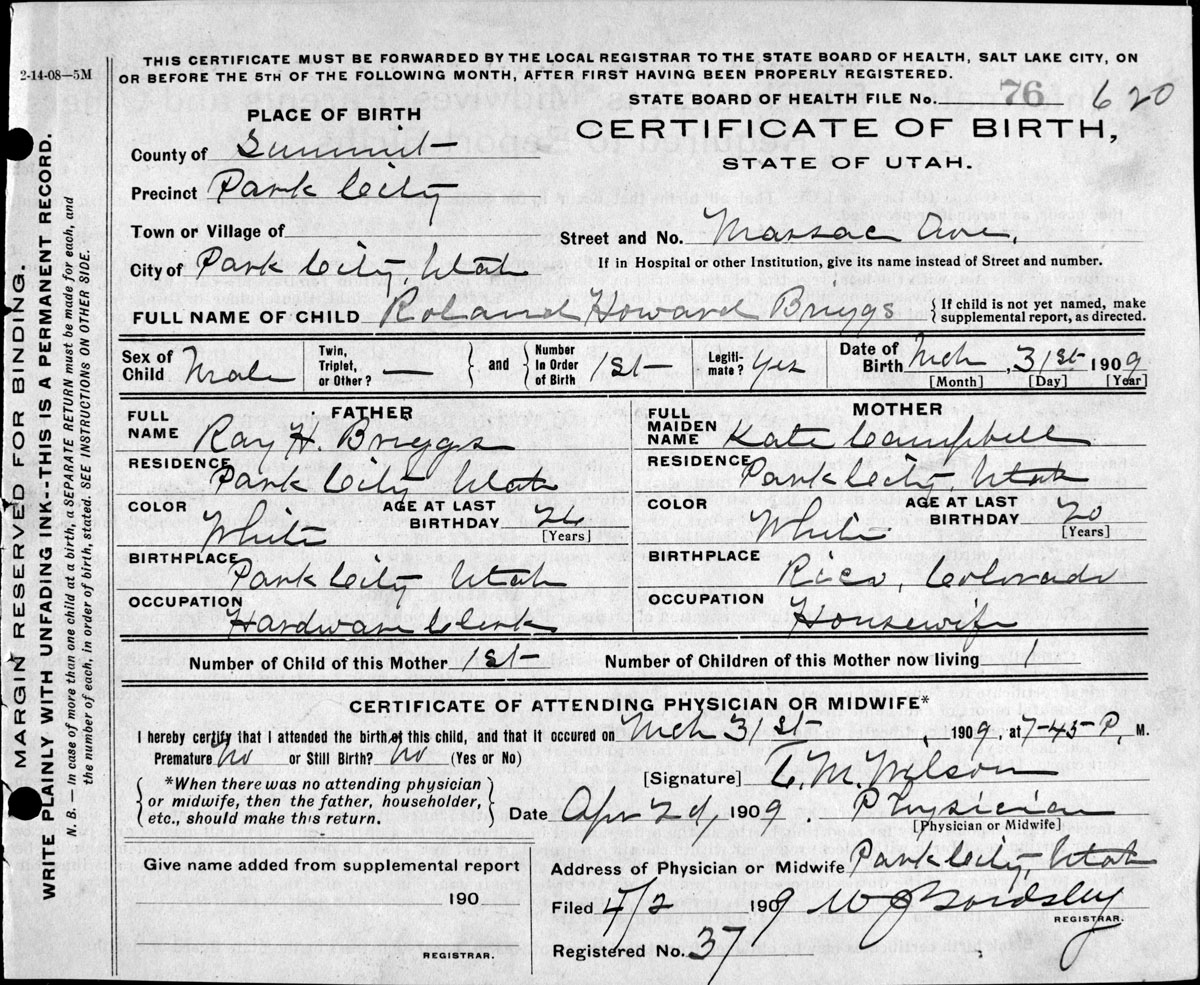 2-14-08—5M
THIS CERTIFICATE MUST BE FORWARDED BY THE LOCAL REGISTRAR TO THE STATE BOARD OF HEALTH, SALT LAKE CITY, ON
OR BEFORE THE 5TH OF THE FOLLOWING MONTH, AFTER FIRST HAVING BEEN PROPERLY REGISTERED.
STATE BOARD OF HEALTH FILE No. 76 620
PLACE OF BIRTH
CERTIFICATE OF BIRTH,
STATE OF UTAH.
County of Summit
Precinct Park City
Town or Village of
Street and No. Massac Ave.
City of Park City, Utah
If in Hospital or other Institution, give its name instead of Street and number.
FULL NAME OF CHILD Roland Howard Briggs { If child is not yet named, make
supplemental report, as directed.
Sex of Child Male
Twin, Triplet, or Other? —
and
Number In Order of Birth 1st
Legiti-mate? Yes
Date of Birth Mch 31st 1909
[Month] [Day] [Year]
FATHER
FULL NAME Ray H. Briggs
RESIDENCE Park City Utah
COLOR White
AGE AT LAST BIRTHDAY 26
[Years]
BIRTHPLACE Park City Utah
OCCUPATION Hardware Clerk
MOTHER
FULL MAIDEN NAME Kate Campbell
RESIDENCE Park City, Utah
COLOR White
AGE AT LAST BIRTHDAY 20
[Years]
BIRTHPLACE Rico, Colorado
OCCUPATION Housewife
Number of Child of this Mother 1st
Number of Children of this Mother now living 1
CERTIFICATE OF ATTENDING PHYSICIAN OR MIDWIFE*
I hereby certify that I attended the birth of this child, and that it occured on Mch 31st, 1909, at 7-45-P M.
Premature No or Still Birth? No (Yes or No)
*When there was no attending physician
or midwife, then the father, householder,
etc., should make this return.
[Signature] T. M. Wilson
Date Apr 2d, 1909. Physician
[Physician or Midwife]
Give name added from supplemental report
190
REGISTRAR.
Address of Physician or Midwife Park City, Utah
Filed 4/2 1909
REGISTRAR.
Registered No. 37
MARGIN RESERVED FOR BINDING.
WRITE PLAINLY WITH UNFADING INK--THIS IS A PERMANENT RECORD.
N. B. — In case of more than one child at a birth, a SEPARATE RETURN must be made for each, and
the number of each, in order of birth, stated. SEE INSTRUCTIONS ON OTHER SIDE.